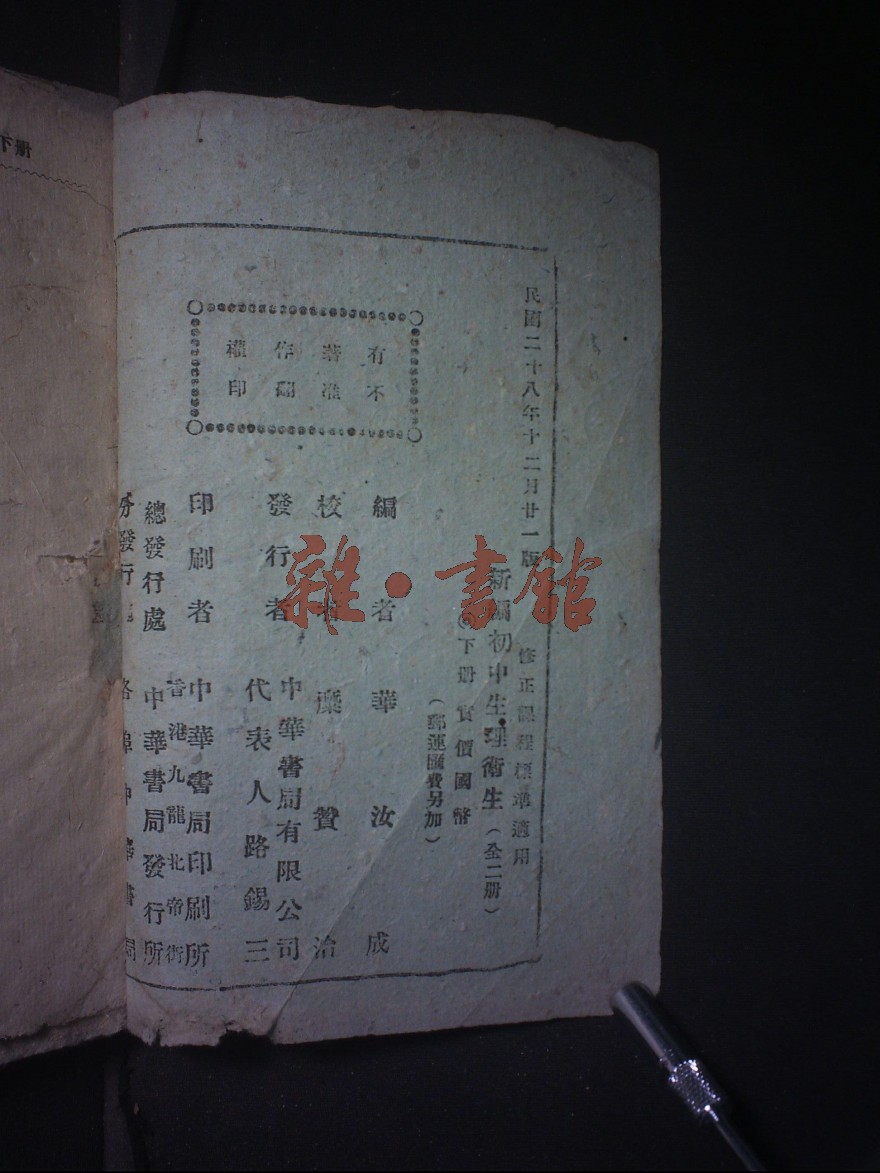 民國二十八年十二月廿一版
修正課程標準適用
新編初中生理衛生（全二册）
下册實價國幣
（郵運匯費另加）
有著作權
不准翻印
編者 華汝成
校者 糜贊治
發行者 中華書局有限公司
代表人路錫三
印刷者 中華書局印刷所
香港九龍北帝街
總發行處 中華書局發行所
分發行處 各埠中華書局
下册
雜·書館